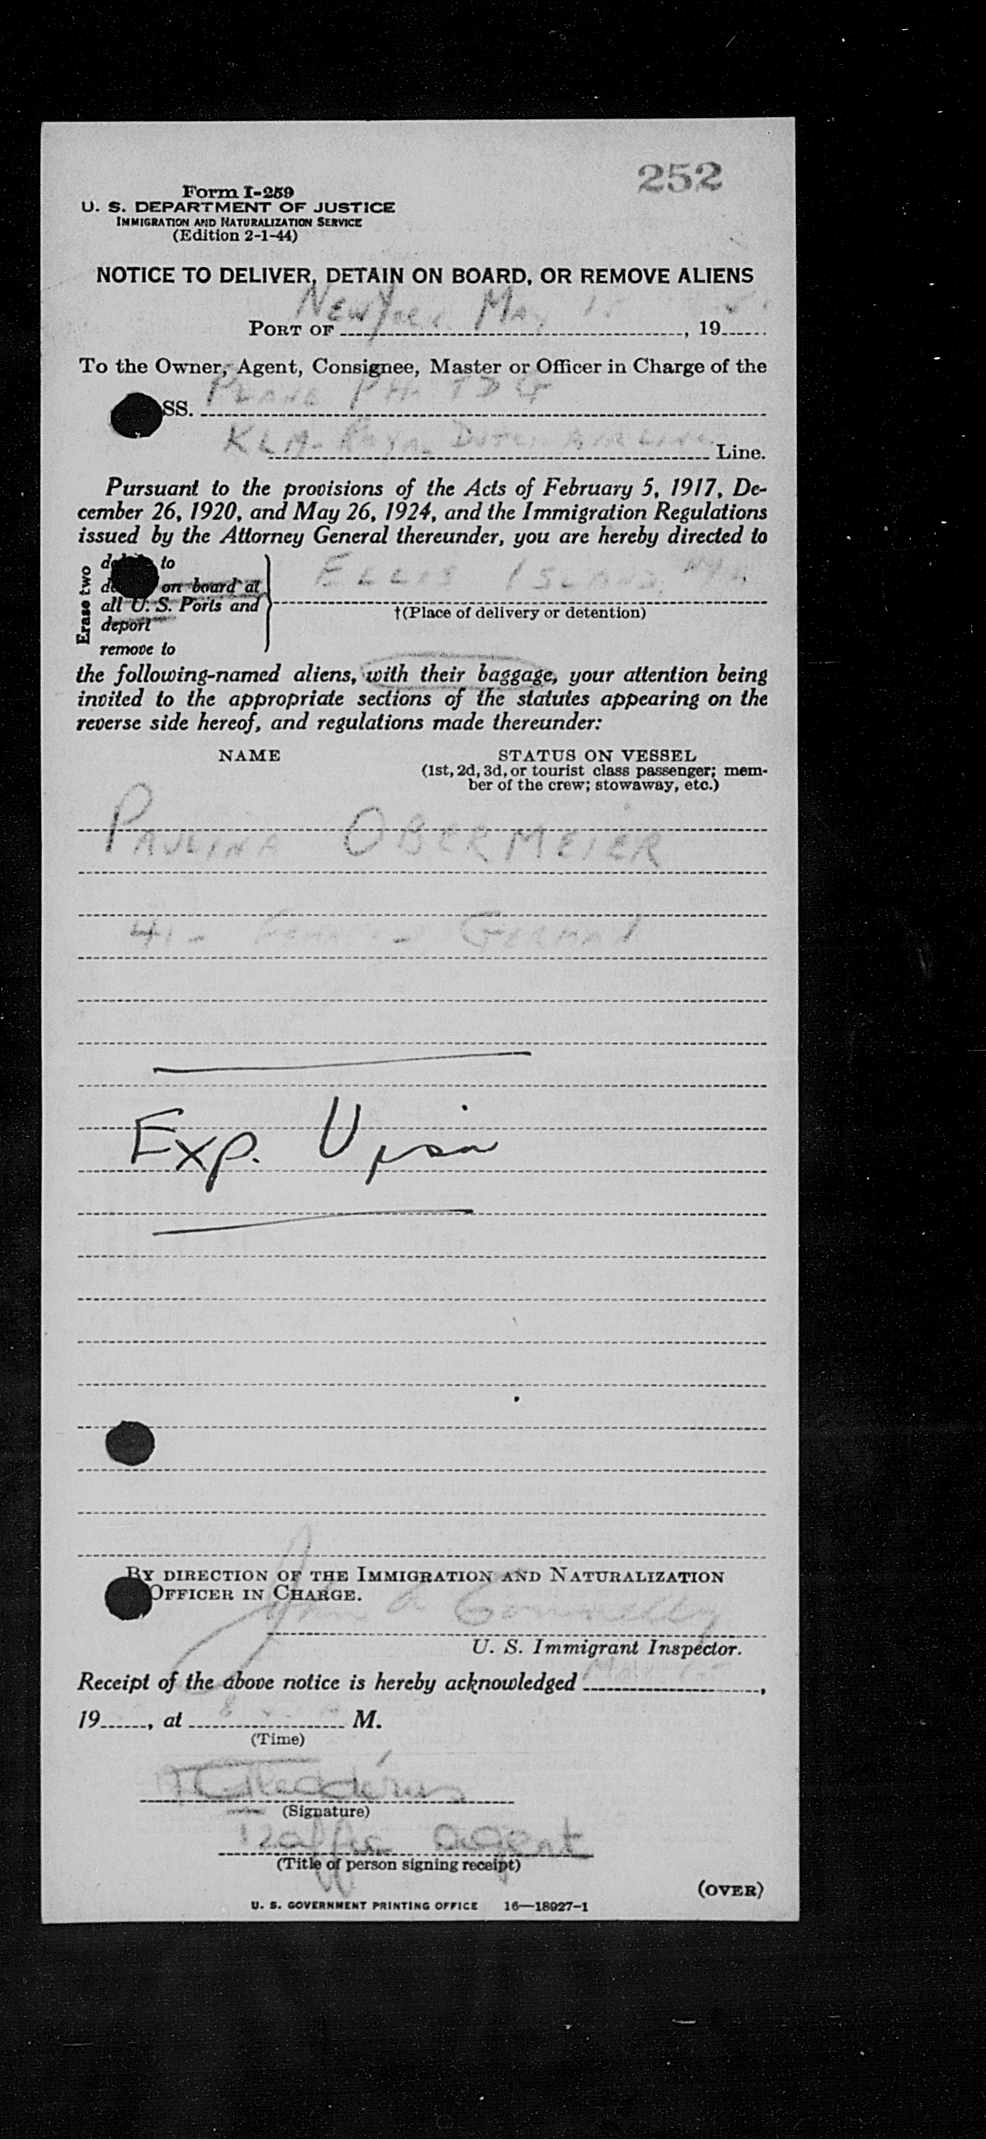 252
Form I-259
U. S. DEPARTMENT OF JUSTICE
IMMIGRATION AND NATURALIZATION SERVICE
(Edition 2-1-44)
NOTICE TO DELIVER, DETAIN ON BOARD, OR REMOVE ALIENS
New York May
PORT OF , 19
To the Owner, Agent, Consignee, Master or Officer in Charge of the
PLANE PH TDG
SS.
KLM-ROYAL DUTCH AIRLINE Line.
Pursuant to the provisions of the Acts of February 5, 1917, De-
cember 26, 1920, and May 26, 1924, and the Immigration Regulations
issued by the Attorney General thereunder, you are hereby directed to
Erase two
to
on board at
all U. S. Ports and
deport
remove to
ELLIS ISLAND, N.Y.
†(Place of delivery or detention)
the following-named aliens, with their baggage, your attention being
invited to the appropriate sections of the statutes appearing on the
reverse side hereof, and regulations made thereunder:
NAME STATUS ON VESSEL
(1st, 2d, 3d, or tourist class passenger; mem-
ber of the crew; stowaway, etc.)
PAULINA OBERMEIER
41 - FEMALE - GERMAN
Exp. Visa
BY DIRECTION OF THE IMMIGRATION AND NATURALIZATION
OFFICER IN CHARGE.
John A Connelly
U. S. Immigrant Inspector.
Receipt of the above notice is hereby acknowledged May 15,
19 , at 8 M.
(Time)
(Signature)
Traffic agent
(Title of person signing receipt)
(OVER)
U. S. GOVERNMENT PRINTING OFFICE 16—18927-1